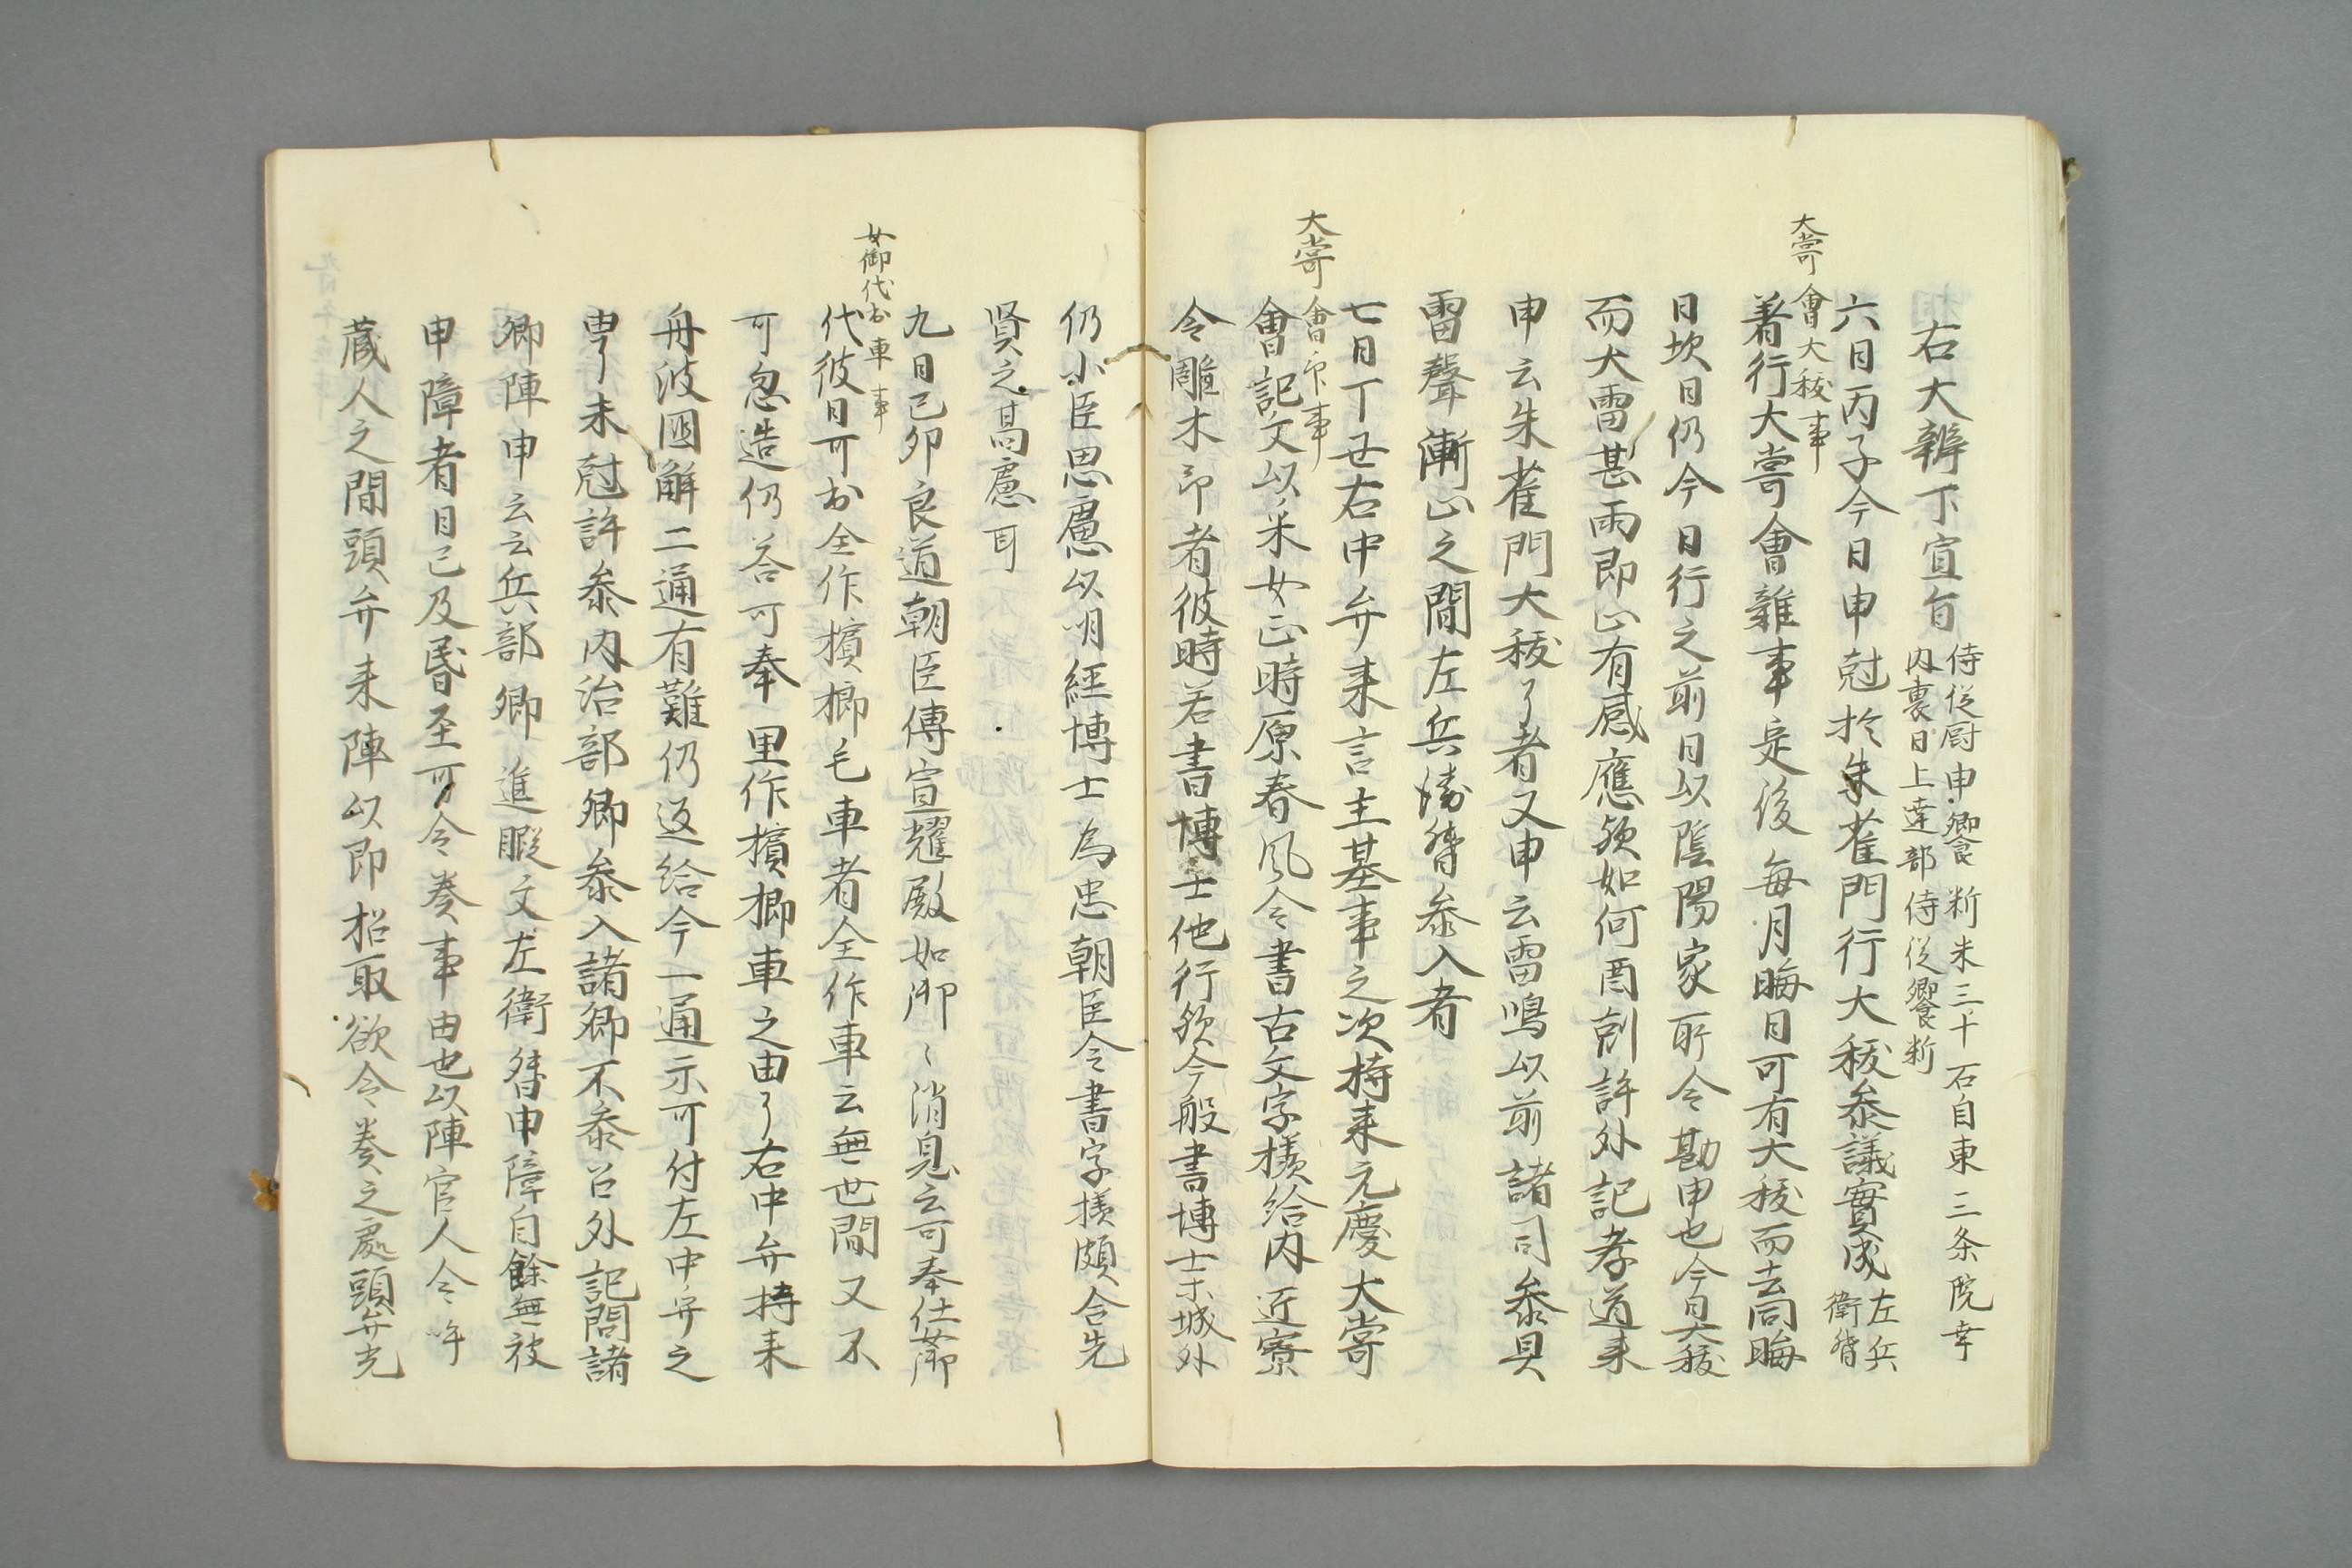 右大辨下宣旨 侍従厨申饗斷米三十石自東三条院幸
内裏日上達部侍従饗斷
大嘗會大秡事
六日丙子今日申尅於朱雀門行大秡参議實成 左兵
衛督
着行大嘗會雜事定後毎月晦日可有大秡而去同晦
日坎日仍今日行之前日以陰陽家所令勘申也今日大秡
而大雷甚雨即止有感應欤如何酉尅許外記孝道来
申云朱雀門大秡了者又申云雷鳴以前諸司参具
雷聲漸止之間左兵衛督参入者
大嘗會印事
七日丁丑右中弁来言主基事之次持来元慶大嘗
會記文以采女正時原春風令書古文字様給内近寮
令雕木印者彼時若書博士他行欤今般書博士未城外
仍小臣思慮以明経博士為忠朝臣令書字様頗合先
賢之高慮耳
女御代出車事
九日己卯良道朝臣傳宣耀殿如御〻消息云可奉仕女御
代彼日可出全作檳榔毛車者全作車云無世間又不
可忽造仍答可奉里作檳榔車之由了右中弁持来
丹波國解二通有難仍返給今一通示可付左中弁之
由了未尅許参内治部卿参入諸卿不参召外記問諸
卿陣申云兵部卿進暇文左衛督申障自餘無被
申障者日已及昏至可令奏事由也以陣官人令呼
蔵人之間頭弁来陣以即招取欲令奏之處頭弁先